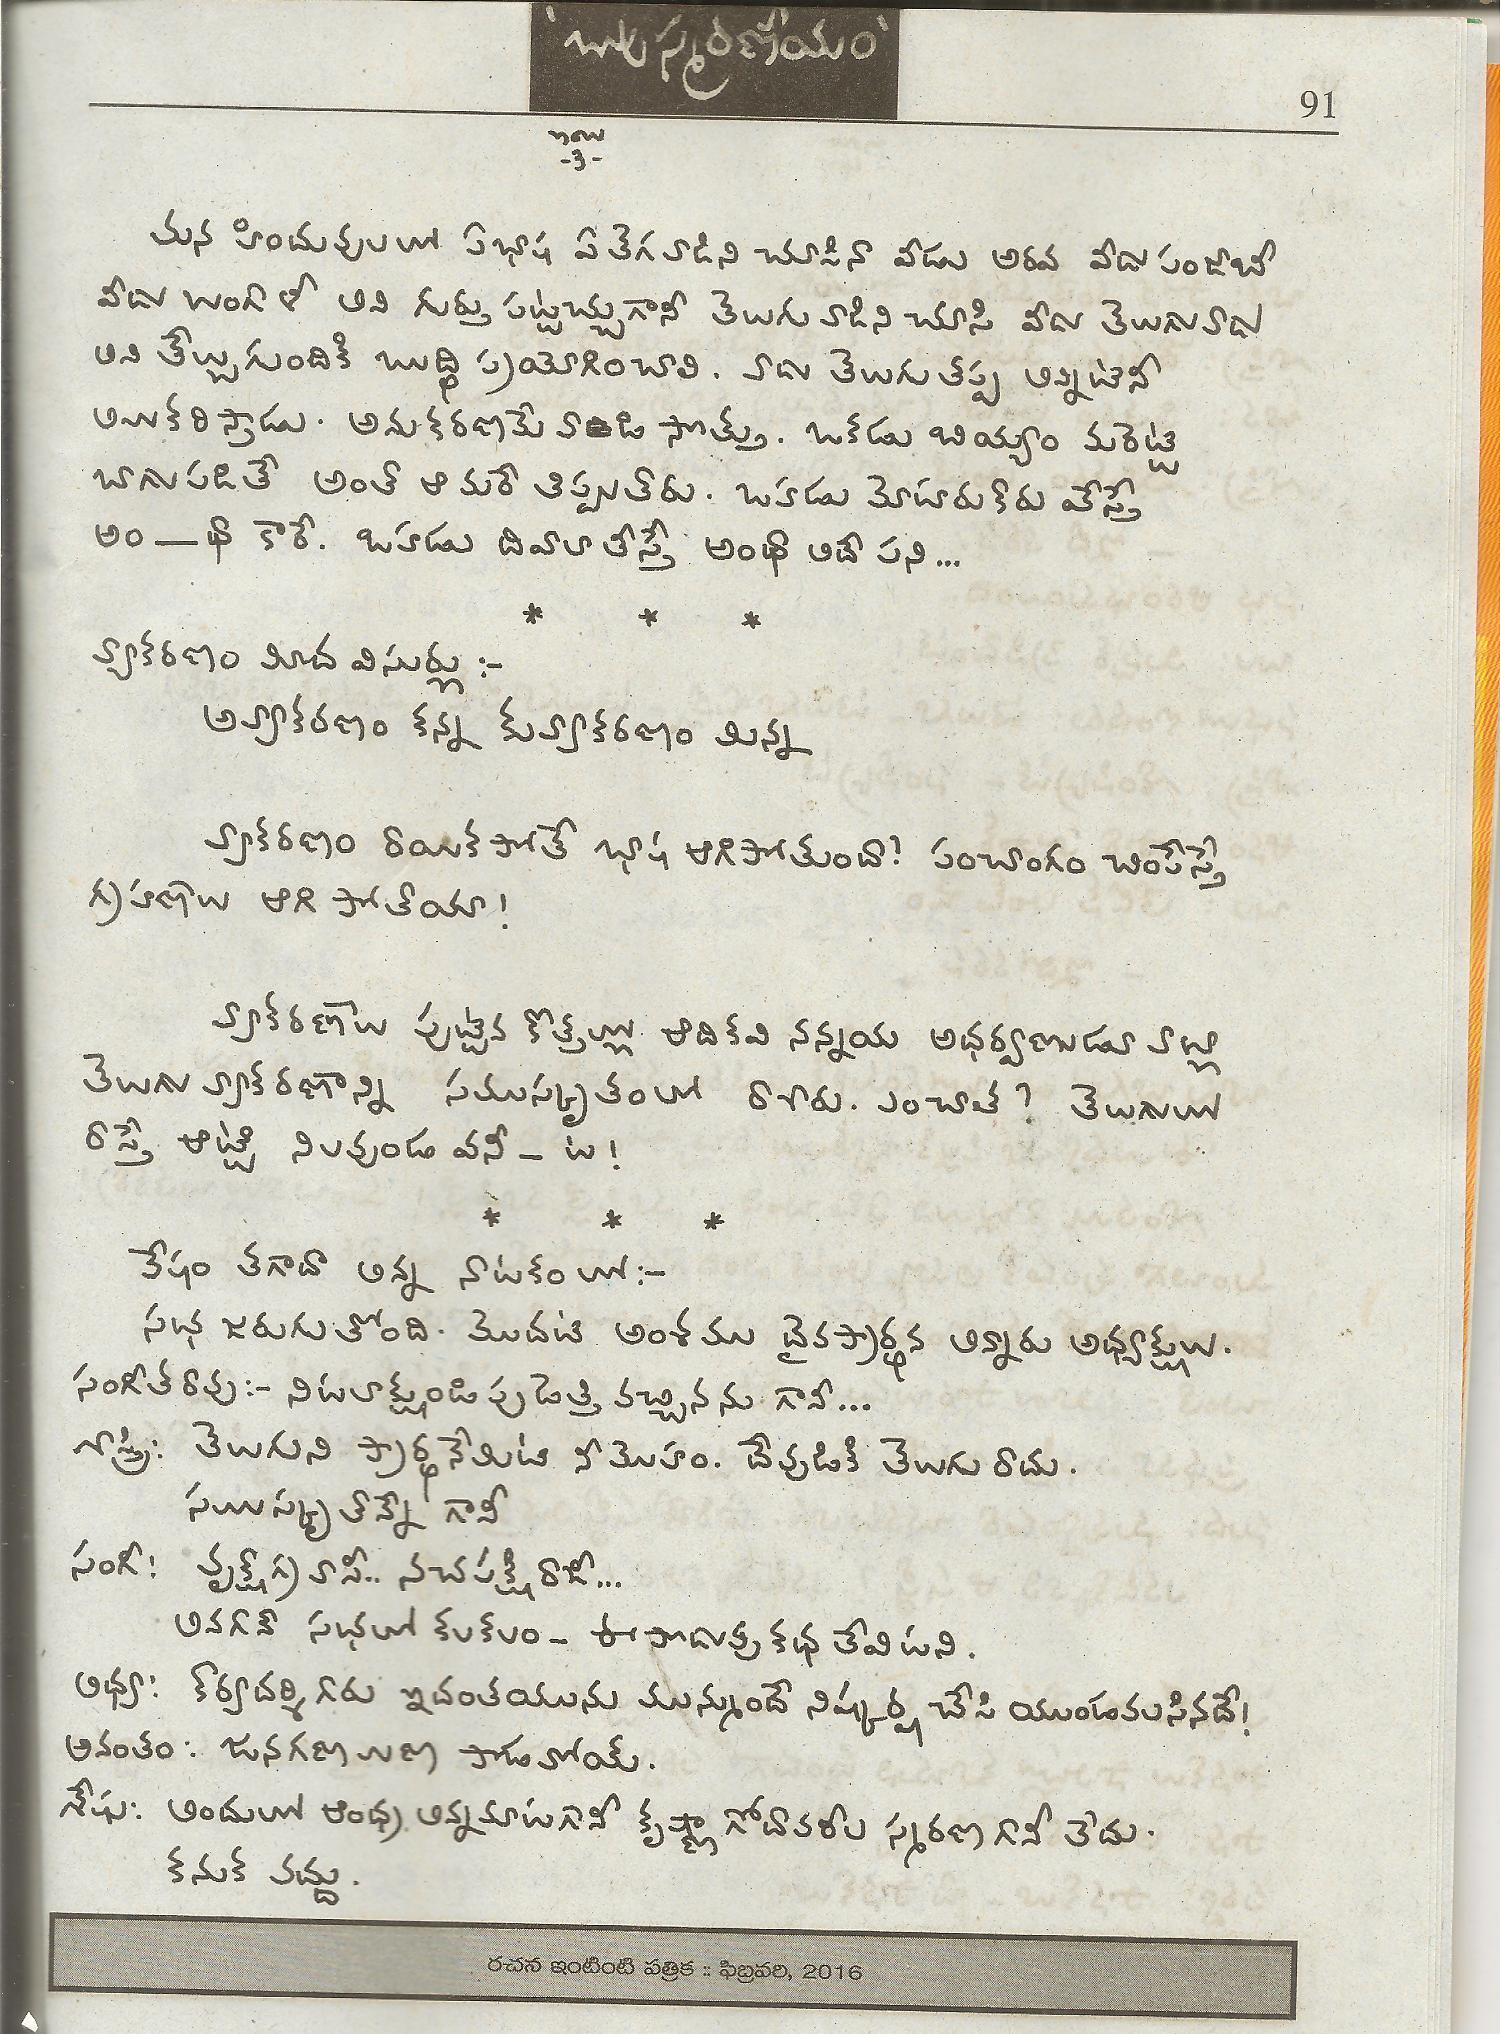 91
-3-
మన హిందువులలో ఏభాష ఏ తెగవాడిని చూసినా వీడు అరవ వీడు పంజాబీ
వీడు బెంగాలీ అని గుర్తు పట్టొచ్చుగానీ తెలుగు వాడిని చూసి వీడు తెలుగువాడు
అని తేల్చుకుందికి బుద్ధి ప్రయోగించాలి. వాడు తెలుగుతప్ప అన్నిటినీ
అనుకరిస్తాడు. అనుకరణమే వాడి సొమ్ము. ఒకడు బియ్యం మరపట్టి
బాగుపడితే అంతా ఆ మరే తిప్పుతారు. ఒకడు మోటారుకారు వేస్తే
అం — థా కారే. ఒకడు దివాలా తీస్తే అంథా అదే పని...
* * *
వ్యాకరణం మీద విసుర్లు :-
అవ్యాకరణం కన్న కువ్యాకరణం మిన్న
వ్యాకరణం రాయకపోతే భాష ఆగిపోతుందా? పంచాంగం చింపేస్తే
గ్రహణాలు ఆగి పోతాయా!
వ్యాకరణాలు పుట్టిన కొత్తల్లో ఆదికవి నన్నయ అధర్వణుడూ వాళ్లు
తెలుగు వ్యాకరణాన్ని సమస్కృతంలో రాశారు. ఎంచేత? తెలుగులో
రాస్తే ఆట్టే నిలవుండ వనీ - ట!
* * *
వేషం తగాదా అన్న నాటకంలో:-
సభ జరుగుతోంది. మొదటి అంశము దైవప్రార్థన అన్నారు అధ్యక్షులు.
సంగీతరావు:- నిటలాక్షుండిపుడెత్తి వచ్చినను గానీ...
శాస్త్రి: తెలుగుని ప్రార్థనేమిటి నీ మొహం. దేవుడికి తెలుగు రాదు.
సమస్కృతమే గానీ
సంగీ: వృక్షాగ్రవాసీ.. నచపక్షిరాజో...
అనగానే సభలో కలకలం - ఈ పొడుపు కథ లేమిటని.
అధ్య: కార్యదర్శిగారు ఇదంతయును మున్ముందే నిష్కర్ష చేసి యుండవలసినదే!
అనంతం: జనగణమణ పాడవోయ్.
శేషు: అందులో ఆంధ్ర అన్నమాటగానీ కృష్ణా గోదావరుల స్మరణగానీ లేదు.
కనుక వద్దు.
రచన ఇంటింటి పత్రిక :: ఫిబ్రవరి, 2016